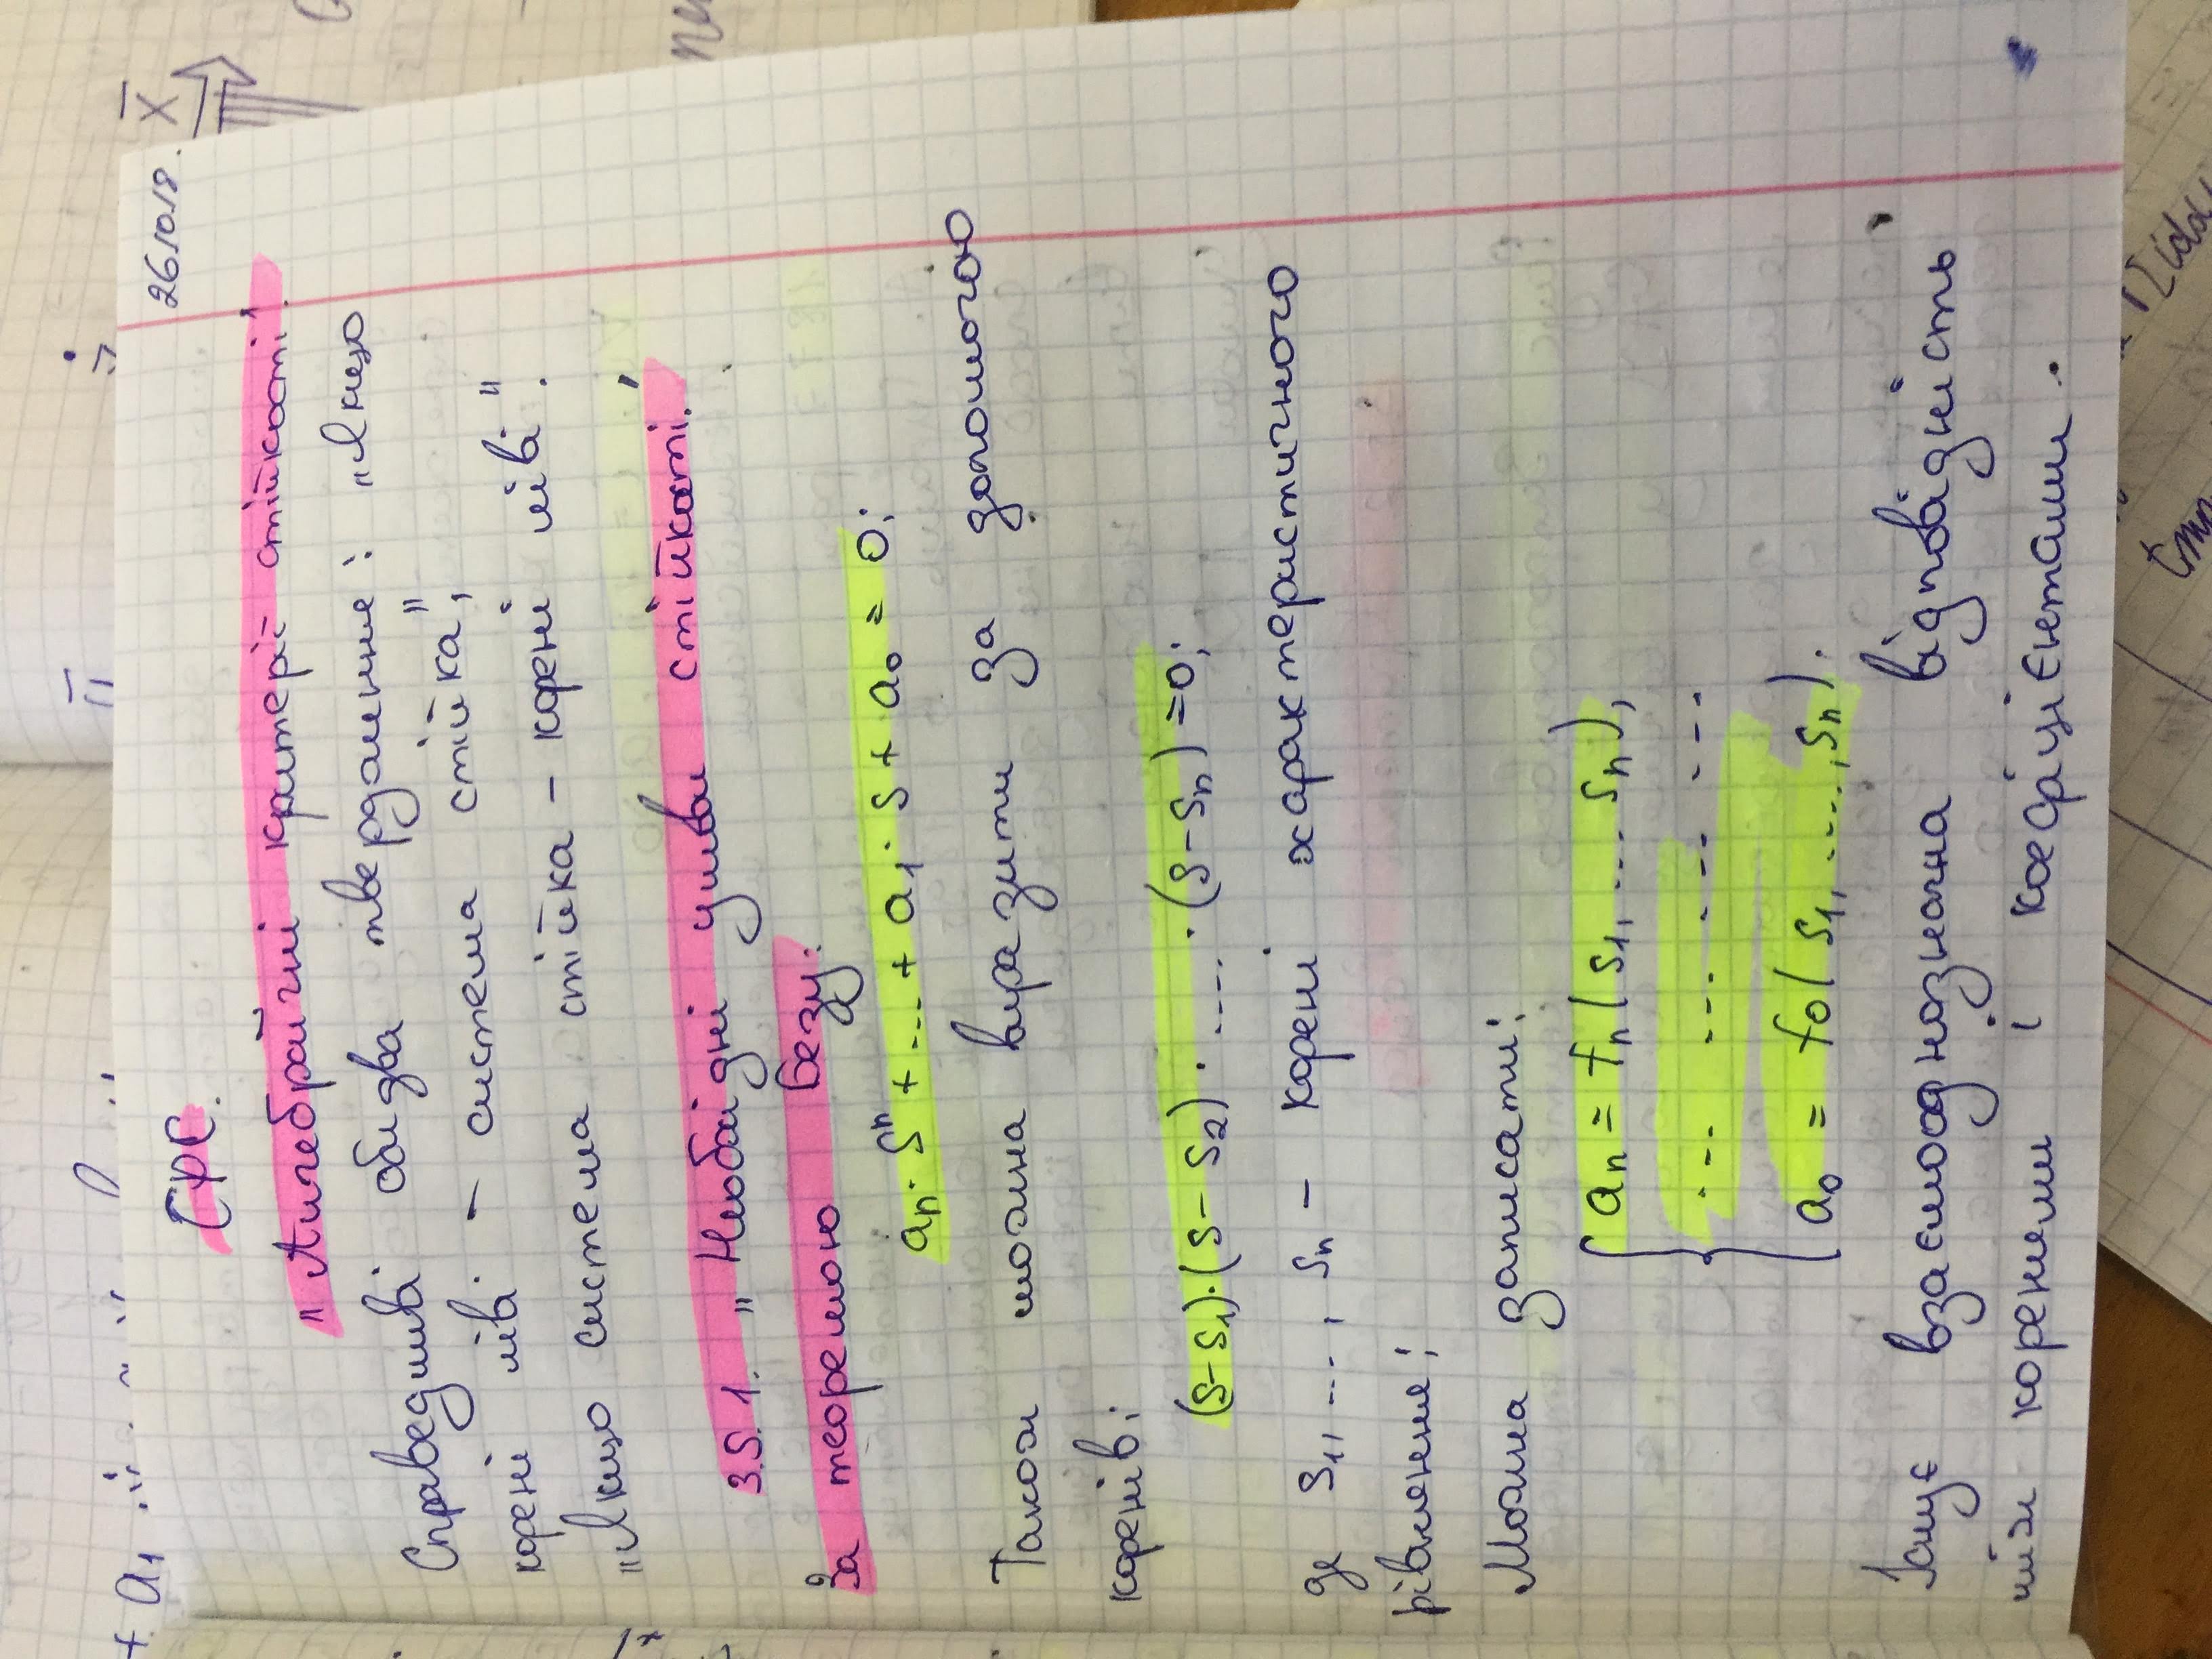 26.10.18.
СРС.
„Алгебраїчні критерії стійкості".
Справедливі обидва твердження: „Якщо
корені ліві – система стійка",
„Якщо система стійка – корені ліві".
3.5.1. „Необхідні умови стійкості."
За теоремою Безу:
aₙ · Sⁿ + ... + a₁ · s + a₀ = 0;
Також можна виразити за допомогою
коренів:
(s-s₁)·(s-s₂)· .... ·(s-sₙ)=0;
де s₁, ..., sₙ – корені характеристичного
рівняння;
Можна записати:
aₙ = fₙ(s₁, ... sₙ),
... ... ... ...
a₀ = f₀(s₁, ....,sₙ).
Існує взаємооднозначна відповідність
між коренями і коефіцієнтами.